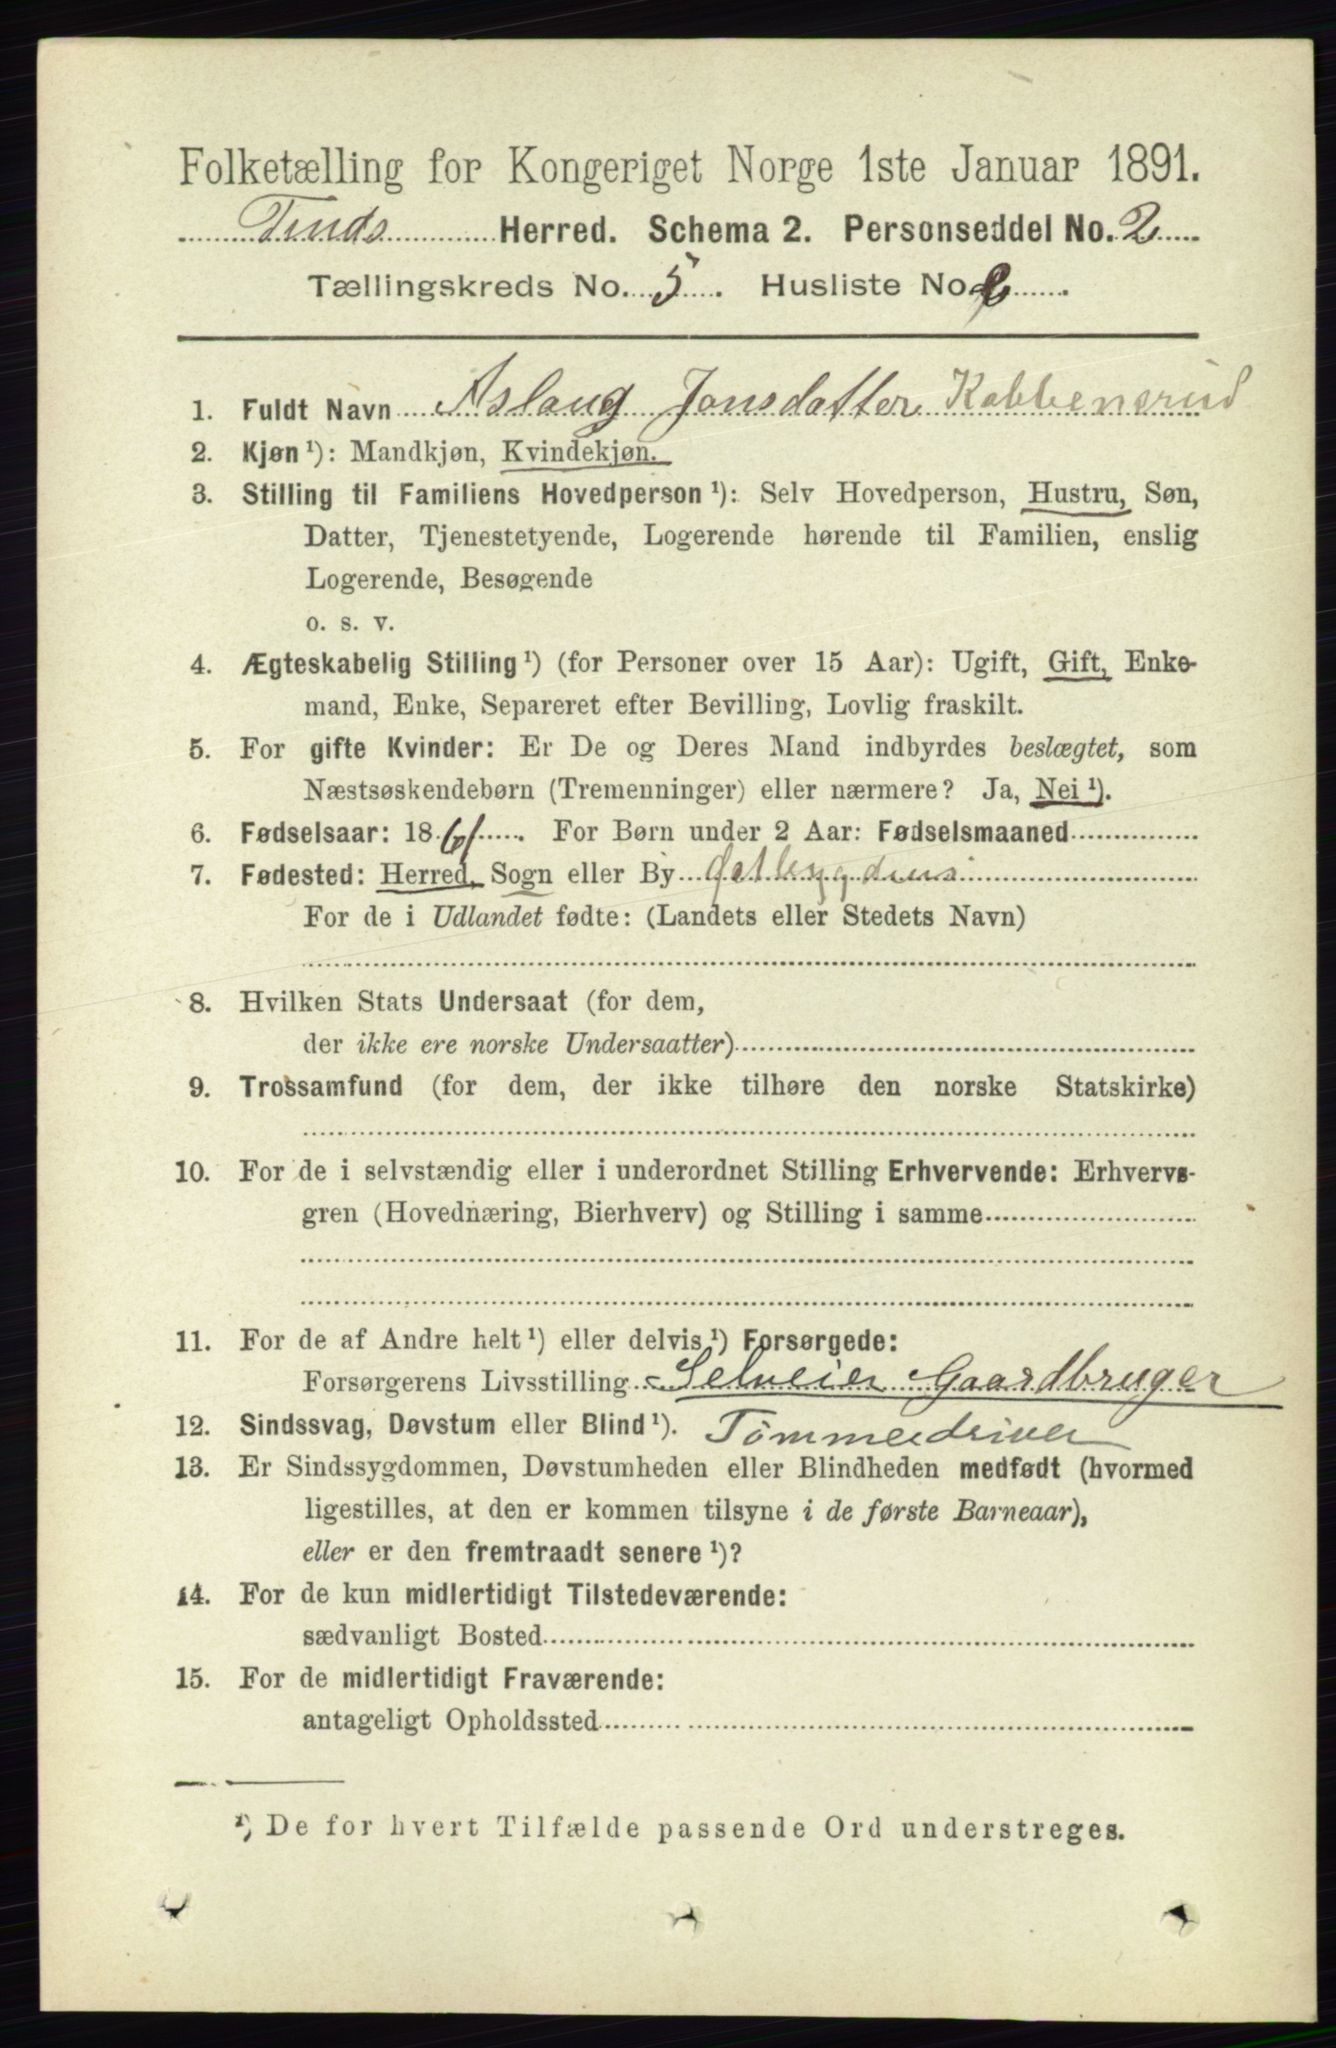 Folketælling for Kongeriget Norge 1ste Januar 1891.
Tinds Herred. Schema 2. Personseddel No. 2
Tællingskreds No. 5. Husliste No.
1. Fuldt Navn Aslaug Jonsdatter Kabbenerud
2. Kjøn ¹): Mandkjøn, Kvindekjøn.
3. Stilling til Familiens Hovedperson ¹): Selv Hovedperson, Hustru, Søn,
Datter, Tjenestetyende, Logerende hørende til Familien, enslig
Logerende, Besøgende
o. s. v.
4. Ægteskabelig Stilling ¹) (for Personer over 15 Aar): Ugift, Gift, Enke-
mand, Enke, Separeret efter Bevilling, Lovlig fraskilt.
5. For gifte Kvinder: Er De og Deres Mand indbyrdes beslægtet, som
Næstsøskendebørn (Tremenninger) eller nærmere? Ja, Nei ¹).
6. Fødselsaar: 1861. For Børn under 2 Aar: Fødselsmaaned
7. Fødested: Herred, Sogn eller By
For de i Udlandet fødte: (Landets eller Stedets Navn)
8. Hvilken Stats Undersaat (for dem,
der ikke ere norske Undersaatter)
9. Trossamfund (for dem, der ikke tilhøre den norske Statskirke)
10. For de i selvstændig eller i underordnet Stilling Erhvervende: Erhvervs-
gren (Hovednæring, Bierhverv) og Stilling i samme
11. For de af Andre helt ¹) eller delvis ¹) Forsørgede:
Forsørgerens Livsstilling Selveier Gaardbruger
12. Sindssvag, Døvstum eller Blind ¹). Tömmerdriver
13. Er Sindssygdommen, Døvstumheden eller Blindheden medfødt (hvormed
ligestilles, at den er kommen tilsyne i de første Barneaar),
eller er den fremtraadt senere ¹)?
14. For de kun midlertidigt Tilstedeværende:
sædvanligt Bosted
15. For de midlertidigt Fraværende:
antageligt Opholdssted
¹) De for hvert Tilfælde passende Ord understreges.